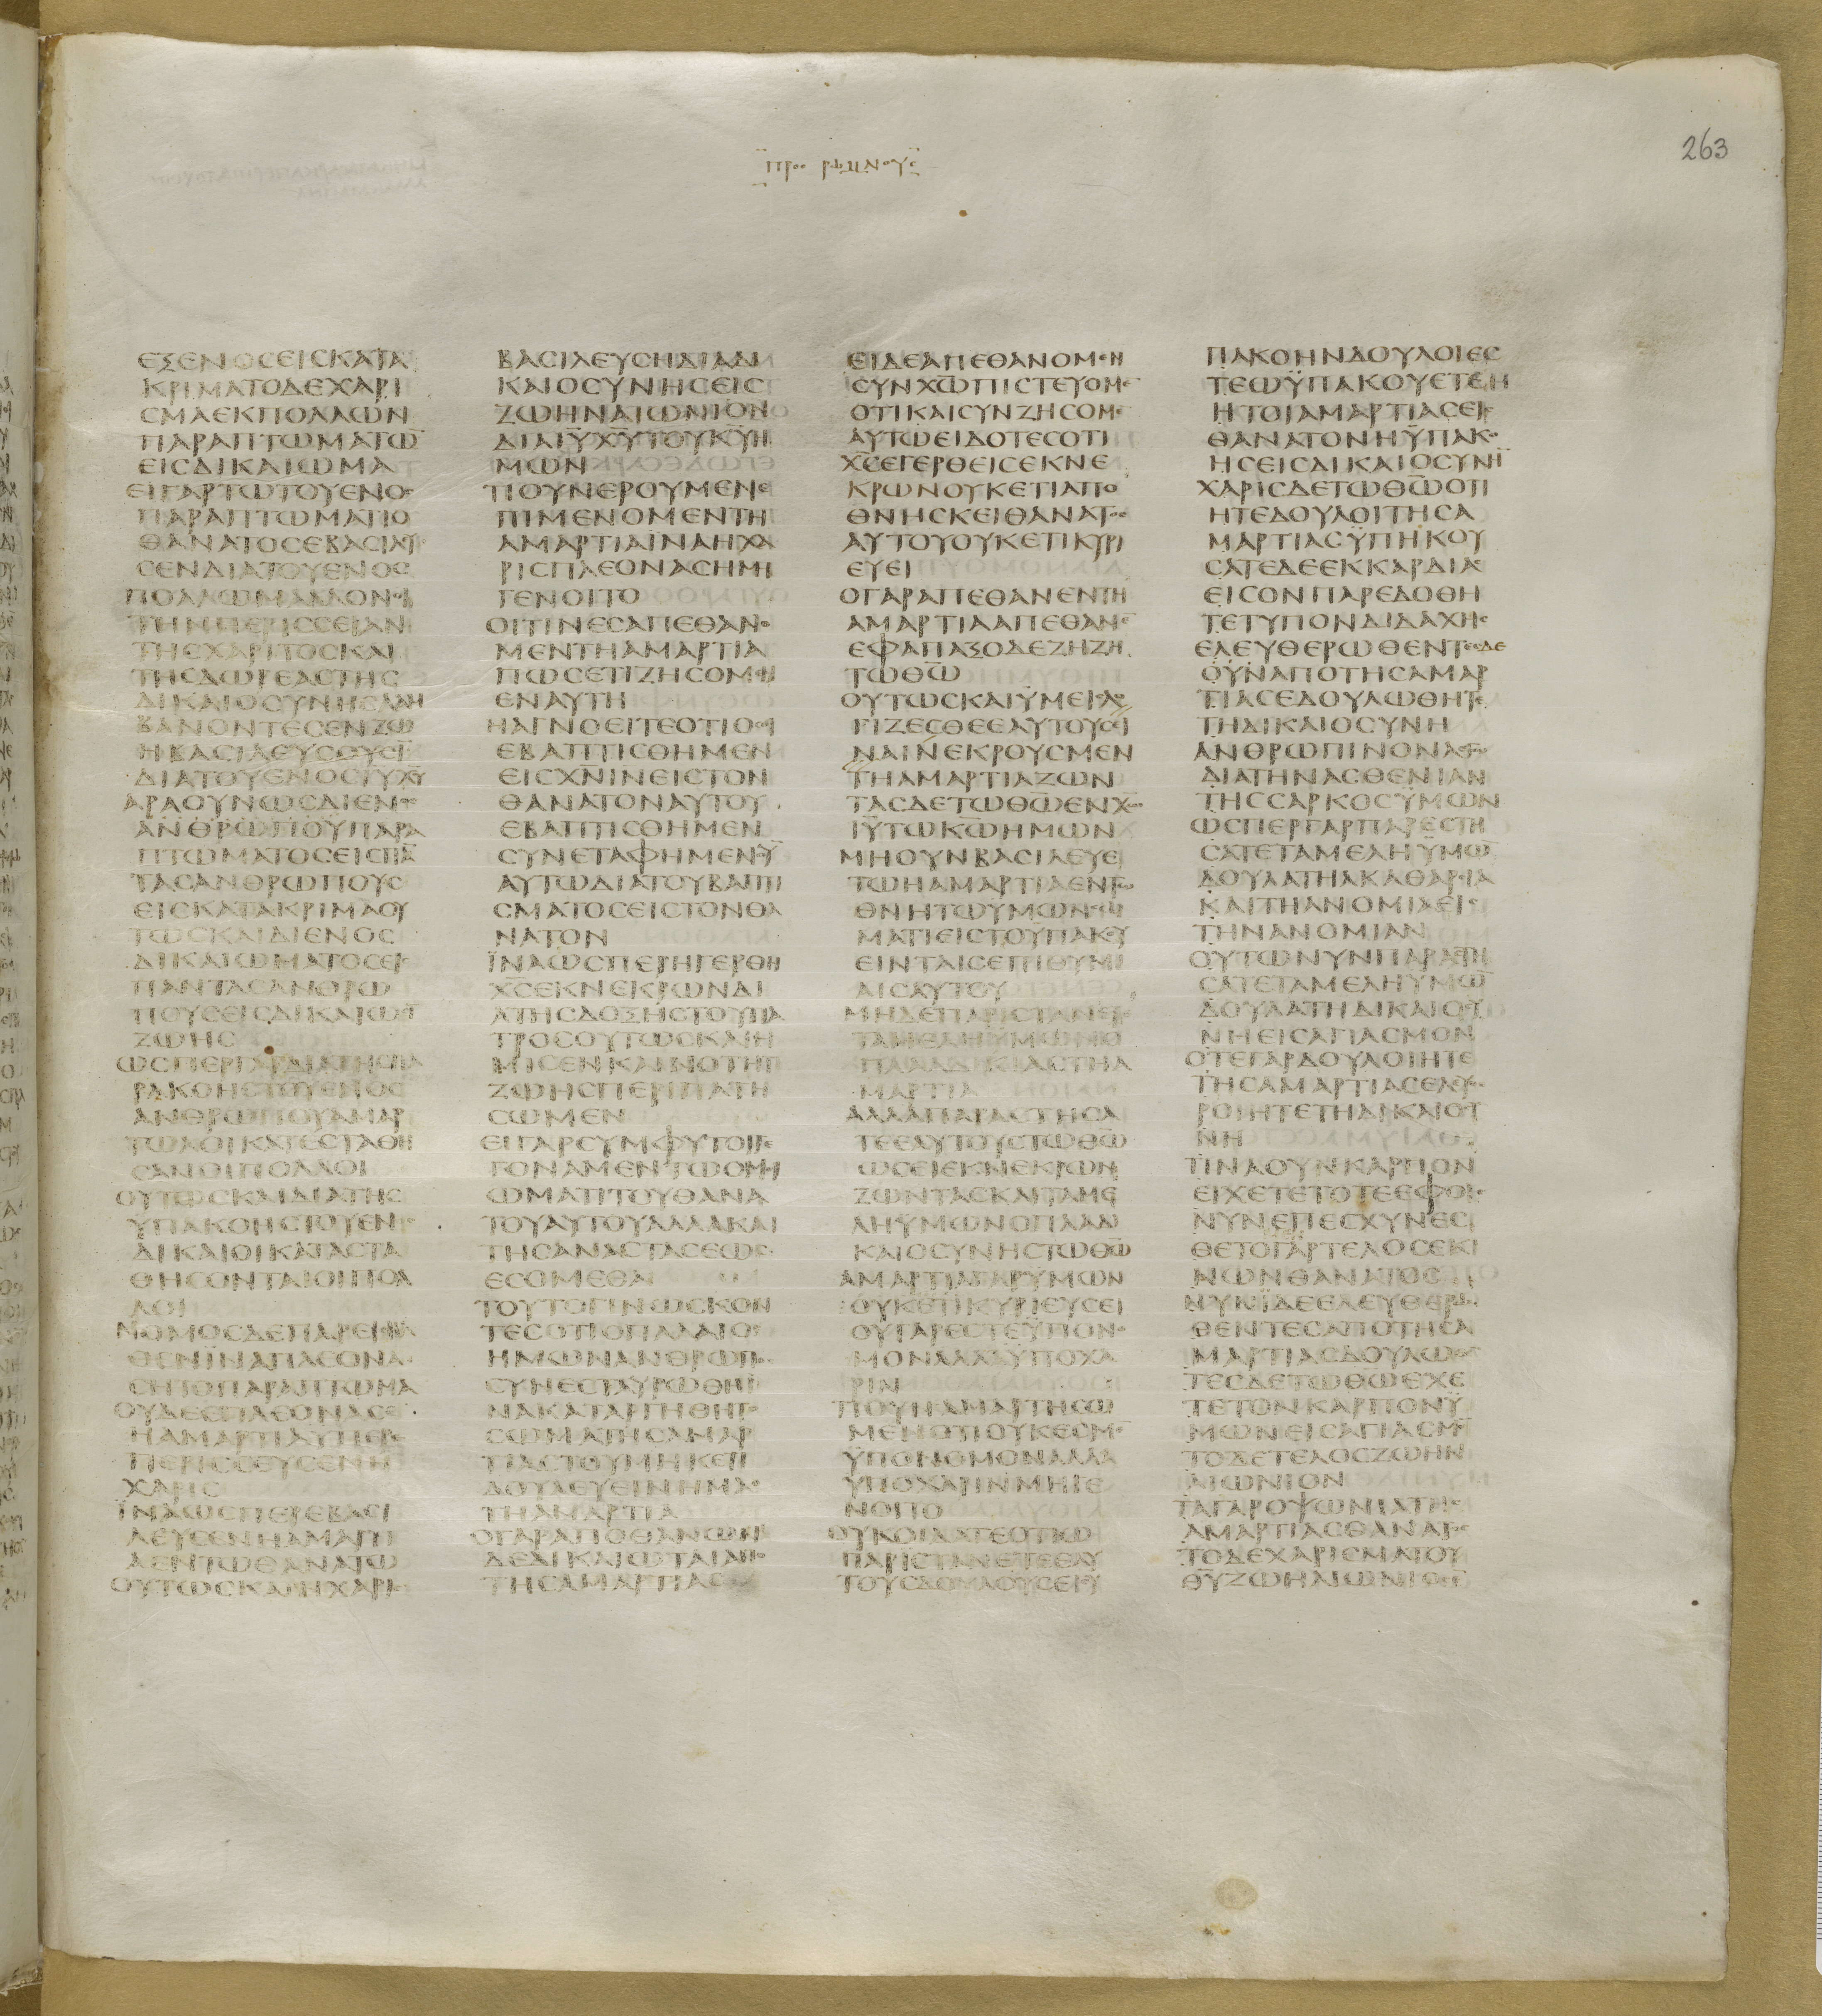 προσ ρωμαιουσ
263
ΕΞΕΝΟϹΕΙϹΚΑΤΑ
ΚΡΙΜΑΤΟΔΕΧΑΡΙ
ϹΜΑΕΚΠΟΛΛΩΝ
ΠΑΡΑΠΤΩΜΑΤΩ̅
ΕΙϹΔΙΚΑΙΩΜΑ
ΕΙΓΑΡΤΩΤΟΥΕΝΟϹ
ΠΑΡΑΠΤΩΜΑΤΙΟ
ΘΑΝΑΤΟϹΕΒΑϹΙΛΕΥ
ϹΕΝΔΙΑΤΟΥΕΝΟϹ
ΠΟΛΛΩΜΑΛΛΟΝΟΙ
ΤΗΝΠΕΡΙϹϹΕΙΑΝ
ΤΗϹΧΑΡΙΤΟϹΚΑΙ
ΤΗϹΔΩΡΕΑϹΤΗϹ
ΔΙΚΑΙΟϹΥΝΗϹΛΑΜ
ΒΑΝΟΝΤΕϹΕΝΖΩ
ΗΒΑϹΙΛΕΥϹΟΥϹΙ
ΔΙΑΤΟΥΕΝΟϹΙ̅Υ̅Χ̅Υ̅
ΑΡΑΟΥΝΩϹΔΙΕΝΟϹ
ΑΝΘΡΩΠΟΥΠΑΡΑ
ΠΤΩΜΑΤΟϹΕΙϹΠΑ̅
ΤΑϹΑΝΘΡΩΠΟΥϹ
ΕΙϹΚΑΤΑΚΡΙΜΑΟΥ
ΤΩϹΚΑΙΔΙΕΝΟϹ
ΔΙΚΑΙΩΜΑΤΟϹΕΙϹ
ΠΑΝΤΑϹΑΝΘΡΩ
ΠΟΥϹΕΙϹΔΙΚΑΙΩϹΙ̅
ΖΩΗϹ
ΩϹΠΕΡΓΑΡΔΙΑΤΗϹΠΑ
ΡΑΚΟΗϹΤΟΥΕΝΟϹ
ΑΝΘΡΩΠΟΥΑΜΑΡ
ΤΩΛΟΙΚΑΤΕϹΤΑΘΗ
ϹΑΝΟΙΠΟΛΛΟΙ
ΟΥΤΩϹΚΑΙΔΙΑΤΗϹ
ΫΠΑΚΟΗϹΤΟΥΕΝΟϹ
ΔΙΚΑΙΟΙΚΑΤΑϹΤΑ
ΘΗϹΟΝΤΑΙΟΙΠΟΛ
ΛΟΙ
ΝΟΜΟϹΔΕΠΑΡΕΙϹΗΛ
ΘΕΝΪΝΑΠΛΕΟΝΑ
ϹΗΤΟΠΑΡΑΠΤΩΜΑ
ΟΥΔΕΕΠΛΕΟΝΑϹΕ
ΗΑΜΑΡΤΙΑΥΠΕΡΕ
ΠΕΡΙϹϹΕΥϹΕΝΗ
ΧΑΡΙϹ
ΪΝΑΩϹΠΕΡΕΒΑϹΙ
ΛΕΥϹΕΝΗΑΜΑΡΤΙ
ΑΕΝΤΩΘΑΝΑΤΩ
ΟΥΤΩϹΚΑΙΗΧΑΡΙϹ
ΒΑϹΙΛΕΥϹΗΔΙΑΔΙ
ΚΑΙΟϹΥΝΗϹΕΙϹ
ΖΩΗΝΑΙΩΝΙΟΝ
ΔΙΑΙ̅Υ̅Χ̅Υ̅ΤΟΥΚ̅Υ̅Η
ΜΩΝ
ΤΙΟΥΝΕΡΟΥΜΕΝΕ
ΠΙΜΕΝΟΜΕΝΤΗ
ΑΜΑΡΤΙΑΪΝΑΗΧΑ
ΡΙϹΠΛΕΟΝΑϹΗΜΗ
ΓΕΝΟΙΤΟ
ΟΙΤΙΝΕϹΑΠΕΘΑΝΟ
ΜΕΝΤΗΑΜΑΡΤΙΑ
ΠΩϹΕΤΙΖΗϹΟΜΕΝ
ΕΝΑΥΤΗ
ΗΑΓΝΟΕΙΤΕΟΤΙΟϹΟΙ
ΕΒΑΠΤΙϹΘΗΜΕΝ
ΕΙϹΧ̅Ν̅Ι̅Ν̅ΕΙϹΤΟΝ
ΘΑΝΑΤΟΝΑΥΤΟΥ
ΕΒΑΠΤΙϹΘΗΜΕΝ
ϹΥΝΕΤΑΦΗΜΕΝΟΥ̅
ΑΥΤΩΔΙΑΤΟΥΒΑΠΤΙ
ϹΜΑΤΟϹΕΙϹΤΟΝΘΑ
ΝΑΤΟΝ
ΪΝΑΩϹΠΕΡΗΓΕΡΘΗ
Χ̅Ϲ̅ΕΚΝΕΚΡΩΝΔΙ
ΑΤΗϹΔΟΞΗϹΤΟΥΠΑ
ΤΡΟϹΟΥΤΩϹΚΑΙΗ
ΜΙϹΕΝΚΑΙΝΟΤΗΤΙ
ΖΩΗϹΠΕΡΙΠΑΤΗ
ϹΩΜΕΝ
ΕΙΓΑΡϹΥΜΦΥΤΟΙΓΕ
ΓΟΝΑΜΕΝΤΩΟΜΟΙ
ΩΜΑΤΙΤΟΥΘΑΝΑ
ΤΟΥΑΥΤΟΥΑΛΛΑΚΑΙ
ΤΗϹΑΝΑϹΤΑϹΕΩϹ
ΕϹΟΜΕΘΑ
ΤΟΥΤΟΓΙΝΩϹΚΟΝ
ΤΕϹΟΤΙΟΠΑΛΑΙΟϹ
ΗΜΩΝΑΝΘΡΩΠΟϹ
ϹΥΝΕϹΤΑΥΡΩΘΗΪ
ΝΑΚΑΤΑΡΓΗΘΗΤΟ
ϹΩΜΑΤΗϹΑΜΑΡ
ΤΙΑϹΤΟΥΜΗΚΕΤΙ
ΔΟΥΛΕΥΕΙΝΗΜΑϹ
ΤΗΑΜΑΡΤΙΑ
ΟΓΑΡΑΠΟΘΑΝΩΝ
ΔΕΔΙΚΑΙΩΤΑΙΑΠΟ
ΤΗϹΑΜΑΡΤΙΑϹ
ΕΙΔΕΑΠΕΘΑΝΟΜΕΝ
ϹΥΝΧ̅Ω̅ΠΙϹΤΕΥΟΜΕ̅
ΟΤΙΚΑΙϹΥΝΖΗϹΟΜΕ̅
ΑΥΤΩΕΙΔΟΤΕϹΟΤΙ
Χ̅Ϲ̅ΕΓΕΡΘΕΙϹΕΚΝΕ
ΚΡΩΝΟΥΚΕΤΙΑΠΟ
ΘΝΗϹΚΕΙΘΑΝΑΤΟϹ
ΑΥΤΟΥΟΥΚΕΤΙΚΥΡΙ
ΕΥΕΙ
ΟΓΑΡΑΠΕΘΑΝΕΝΤΗ
ΑΜΑΡΤΙΑΑΠΕΘΑΝΕ̅
ΕΦΑΠΑΞΟΔΕΖΗΖΗ
ΤΩΘ̅Ω̅
ΟΥΤΩϹΚΑΙΫΜΕΙϹΛΟ
ΓΙΖΕϹΘΕΕΑΥΤΟΥϹΕΙ
ΝΑΙΝΕΚΡΟΥϹΜΕΝ
ΤΗΑΜΑΡΤΙΑΖΩΝ
ΤΑϹΔΕΤΩΘ̅Ω̅ΕΝΧ̅Ω̅
Ι̅Υ̅ΤΩΚ̅Ω̅ΗΜΩΝ
ΜΗΟΥΝΒΑϹΙΛΕΥΕ
ΤΩΗΑΜΑΡΤΙΑΕΝΤΩ
ΘΝΗΤΩΫΜΩΝϹΩ
ΜΑΤΙΕΙϹΤΟΥΠΑΚΟΥ
ΕΙΝΤΑΙϹΕΠΙΘΥΜΙ
ΑΙϹΑΥΤΟΥ
ΜΗΔΕΠΑΡΙϹΤΑΝΕΤΕ
ΤΑΜΕΛΗΫΜΩΝΟ
ΠΛΑΑΔΙΚΙΑϹΤΗΑ
ΜΑΡΤΙΑ
ΑΛΛΑΠΑΡΑϹΤΗϹΑ
ΤΕΕΑΥΤΟΥϹΤΩΘ̅Ω̅
ΩϹΕΙΕΚΝΕΚΡΩΝ
ΖΩΝΤΑϹΚΑΙΤΑΜΕ
ΛΗΫΜΩΝΟΠΛΑΔΙ
ΚΑΙΟϹΥΝΗϹΤΩΘ̅Ω̅
ΑΜΑΡΤΙΑΓΑΡΫΜΩΝ
ΟΥΚΕΤΙΚΥΡΙΕΥϹΕΙ
ΟΥΓΑΡΕϹΤΕΫΠΟΝΟ
ΜΟΝΑΛΛΑΫΠΟΧΑ
ΡΙΝ
ΤΙΟΥΝΑΜΑΡΤΗϹΩ
ΜΕΝΟΤΙΟΥΚΕϹΜΕ̅
ΫΠΟΝΟΜΟΝΑΛΛΑ
ΫΠΟΧΑΡΙΝΜΗΓΕ
ΝΟΙΤΟ
ΟΥΚΟΙΔΑΤΕΟΤΙΩ
ΠΑΡΙϹΤΑΝΕΤΕΕΑΥ
ΤΟΥϹΔΟΥΛΟΥϹΕΙϹΫ
ΠΑΚΟΗΝΔΟΥΛΟΙΕϹ
ΤΕΩΫΠΑΚΟΥΕΤΕΗ
ΗΤΟΙΑΜΑΡΤΙΑϹΕΙϹ
ΘΑΝΑΤΟΝΗΫΠΑΚΟ
ΗϹΕΙϹΔΙΚΑΙΟϹΥΝΗ̅
ΧΑΡΙϹΔΕΤΩΘ̅Ω̅ΟΤΙ
ΗΤΕΔΟΥΛΟΙΤΗϹΑ
ΜΑΡΤΙΑϹΫΠΗΚΟΥ
ϹΑΤΕΔΕΕΚΚΑΡΔΙΑϹ
ΕΙϹΟΝΠΑΡΕΔΟΘΗ
ΤΕΤΥΠΟΝΔΙΔΑΧΗϹ
ΕΛΕΥΘΕΡΩΘΕΝΤΕϹΔΕ
ΟΥΝΑΠΟΤΗϹΑΜΑΡ
ΤΙΑϹΕΔΟΥΛΩΘΗΤΕ
ΤΗΔΙΚΑΙΟϹΥΝΗ
ΑΝΘΡΩΠΙΝΟΝΛΕΓΩ
ΔΙΑΤΗΝΑϹΘΕΝΙΑΝ
ΤΗϹϹΑΡΚΟϹΫΜΩΝ
ΩϹΠΕΡΓΑΡΠΑΡΕϹΤΗ
ϹΑΤΕΤΑΜΕΛΗΫΜΩ̅
ΔΟΥΛΑΤΗΑΚΑΘΑΡϹΙΑ
ΚΑΙΤΗΑΝΟΜΙΑΕΙϹ
ΤΗΝΑΝΟΜΙΑΝ
ΟΥΤΩΝΥΝΠΑΡΑϹΤΗ
ϹΑΤΕΤΑΜΕΛΗΫΜΩ̅
ΔΟΥΛΑΤΗΔΙΚΑΙΟϹΥ
ΝΗΕΙϹΑΓΙΑϹΜΟΝ
ΟΤΕΓΑΡΔΟΥΛΟΙΗΤΕ
ΤΗϹΑΜΑΡΤΙΑϹΕΛΕΥΘΕ
ΡΟΙΗΤΕΤΗΔΙΚΑΙΟϹΥ
ΝΗ
ΤΙΝΑΟΥΝΚΑΡΠΟΝ
ΕΙΧΕΤΕΤΟΤΕΕΦΟΙϹ
ΝΥΝΕΠΕϹΧΥΝΕϹ
ΘΕΤΟΓΑΡΤΕΛΟϹΕΚΙ
ΝΩΝΘΑΝΑΤΟϹ
ΝΥΝΪΔΕΕΛΕΥΘΕΡΩ
ΘΕΝΤΕϹΑΠΟΤΗϹΑ
ΜΑΡΤΙΑϹΔΟΥΛΩΘΕ̅
ΤΕϹΔΕΤΩΘ̅Ω̅ΕΧΕ
ΤΕΤΟΝΚΑΡΠΟΝΫ
ΜΩΝΕΙϹΑΓΙΑϹΜΟ̅
ΤΟΔΕΤΕΛΟϹΖΩΗΝ
ΑΙΩΝΙΟΝ
ΤΑΓΑΡΟΨΩΝΙΑΤΗϹ
ΑΜΑΡΤΙΑϹΘΑΝΑΤΟϹ
ΤΟΔΕΧΑΡΙϹΜΑΤΟΥ
Θ̅Υ̅ΖΩΗΑΙΩΝΙΟϹΕ̅